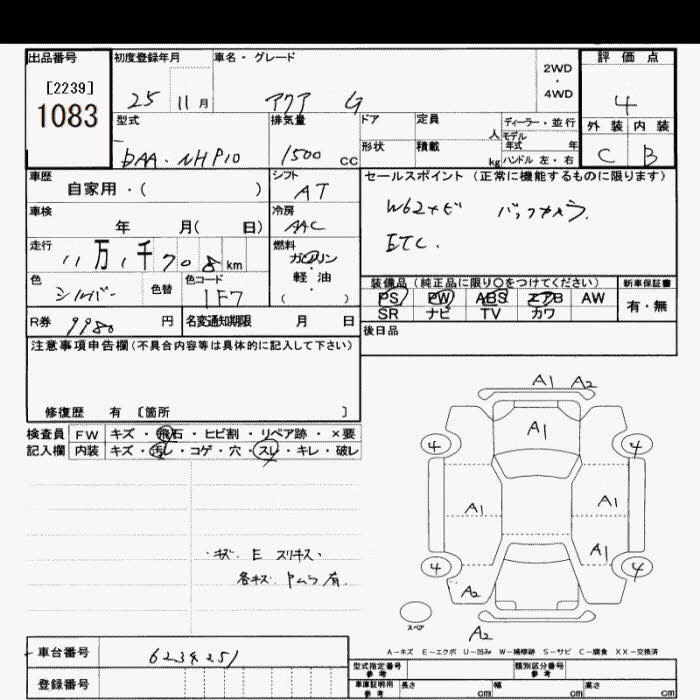 出品番号 初度登録年月 車名・グレード 2WD・4WD 評価点
[2239]
1083 25 11月 アクア G 4
外装 内装
C B
型式 排気量 ドア 定員 人 ディーラー・並行
モデル年式 年
DAA・NHP10 1500 cc 形状 積載 kg ハンドル 左・右
車歴 シフト セールスポイント(正常に機能するものに限ります)
自家用・( ) AT
車検 冷房 バックカメラ.
年 月( 日) AAC ETC.
走行 燃料
11万1千708km ガソリン・軽油
( )
色 色替 色コード 装備品(純正品に限り○をつけてください) 新車保証書
シルバー 1F7 PS PW ABS エアB AW 有・無
SR ナビ TV カワ
R券 9980 円 名変通知期限 月 日 後日品
注意事項申告欄(不具合内容等は具体的に記入して下さい)
修復歴 有 〔箇所 〕
検査員 FW キズ・飛石・ヒビ割・リペア跡・×要
記入欄 内装 キズ・汚レ・コゲ・穴・スレ・キレ・破レ
・キズ. E スリキズ・
各キズ. 有.
A1 A2
A1
4 4
A1 A1
A1
4 4
A2
スペア
A2
A-キズ E-エクボ U-凹み W-補修跡 S-サビ C-腐食 XX-交換済
車台番号 6234251
登録番号
型式指定番号 参考 類別区分番号 参考
車庫証明用 参考 長さ cm 幅 cm 高さ cm